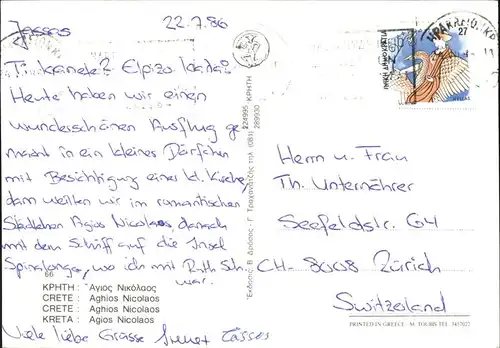 Jassus 22.7.86
Ti kanete? Elpizo kala!
Heute haben wir einen
wunderschönen Ausflug ge-
macht in ein kleines Dörfchen
mit Besichtigung einer kl. Kirche,
dann weilten wir im romantischen
Städtchen Agios Nicolaos danach
mit dem Schiff auf die Insel
Spinalonga, wo ich mit Ruth Sch
war.
66
ΚΡΗΤΗ : Άγιος Νικόλαος
CRETE : Aghios Nicolaos
CRETE : Aghios Nicolaos
KRETA : Aghios Nicolaos
Viele liebe Grüsse Tassos
224995 - ΚΡΗΤΗ
289930
Έκδοσις Β. Δρόσος - Γ. τηλ. (081)
ΗΡΑΚΛΙΟ ΚΡ
27
ΕΛΛΗΝΙΚΗ ΔΗΜΟΚΡΑΤΙΑ
HELLAS
Herrn u. Frau
Th. Unternährer
Seefeldstr. 64
CH-8008 Zürich
Switzerland
PRINTED IN GREECE - M. TOUBIS TEL.